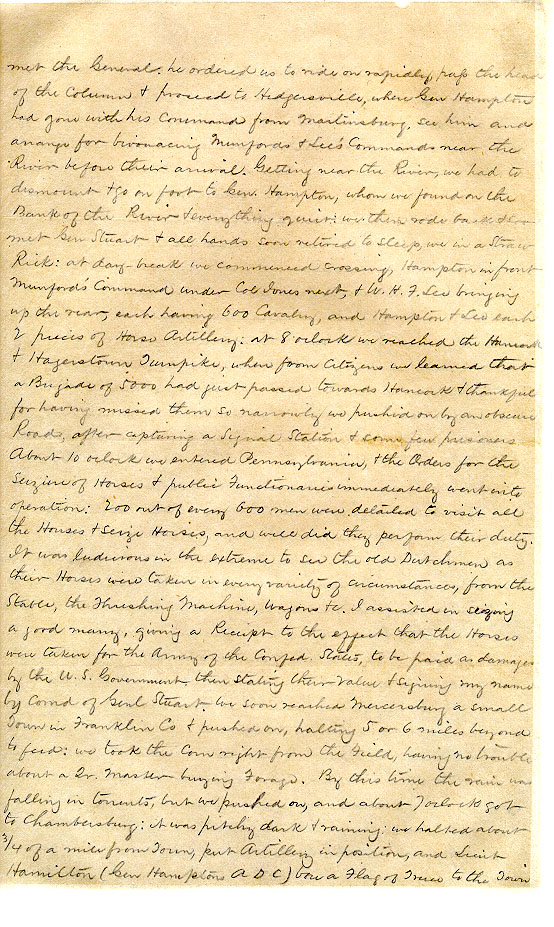 met the General. he ordered us to ride on rapidly, pass the head
of the Column & proceed to Hedgersville, where Gen Hampton
had gone with his Command from Martinsburg, see him and
arrange for bivouacing Munfords & Lee's Commands near the
River before their arrival. Getting near the River, we had to
dismount & go on foot to Gen. Hampton, whom we found on the
Bank of the River & everything quiet: we then rode back &
met Gen Stuart & all hands soon retired to sleep, we in a Straw
Rick: at day-break we commenced crossing, Hampton in front
Munfords Command under Col Jones next, & W. H. F. Lee bringing
up the rear, each having 600 Cavalry, and Hampton & Lee each
2 pieces of Horse Artillery: at 8 oclock we reached the Hancock
& Hagerstown Turnpike, when from Citizens we learned that
a Brigade of 5000 had just passed towards Hancock & thankful
for having missed them so narrowly we pushed on by an obscure
Road, after capturing a Signal Station & some few prisoners
About 10 oclock we entered Pennsylvania, & the Orders for the
Seizure of Horses & public Functionaries immediately went into
operation: 200 out of every 600 men were detailed to visit all
the Houses & seize Horses, and well did they perform their duty.
It was ludicrous in the extreme to see the old Dutchmen as
their Horses were taken in every variety of circumstances, from the
Stable, the Threshing Machine, Wagons &c. I assisted in seizing
a good many, giving a Receipt to the effect that the Horses
were taken for the Army of the Confed. States, to be paid as damages
by the U. S. Government, then stating their value & signing my name
by Comd of Genl Stuart. we soon reached Mercersburg a small
Town in Franklin Co & pushed on, halting 5 or 6 miles beyond
to feed: we took the Corn right from the Field, having no trouble
about a Qr. Master buying Forage. By this time the rain was
falling in torrents, but we pushed on, and about 7 oclock got
to Chambersburg: it was pitchy dark & raining: we halted about
3/4 of a mile from Town, put Artillery in position, and Lieut
Hamilton (Gen Hamptons A D C) bore a Flag of Truce to the Town